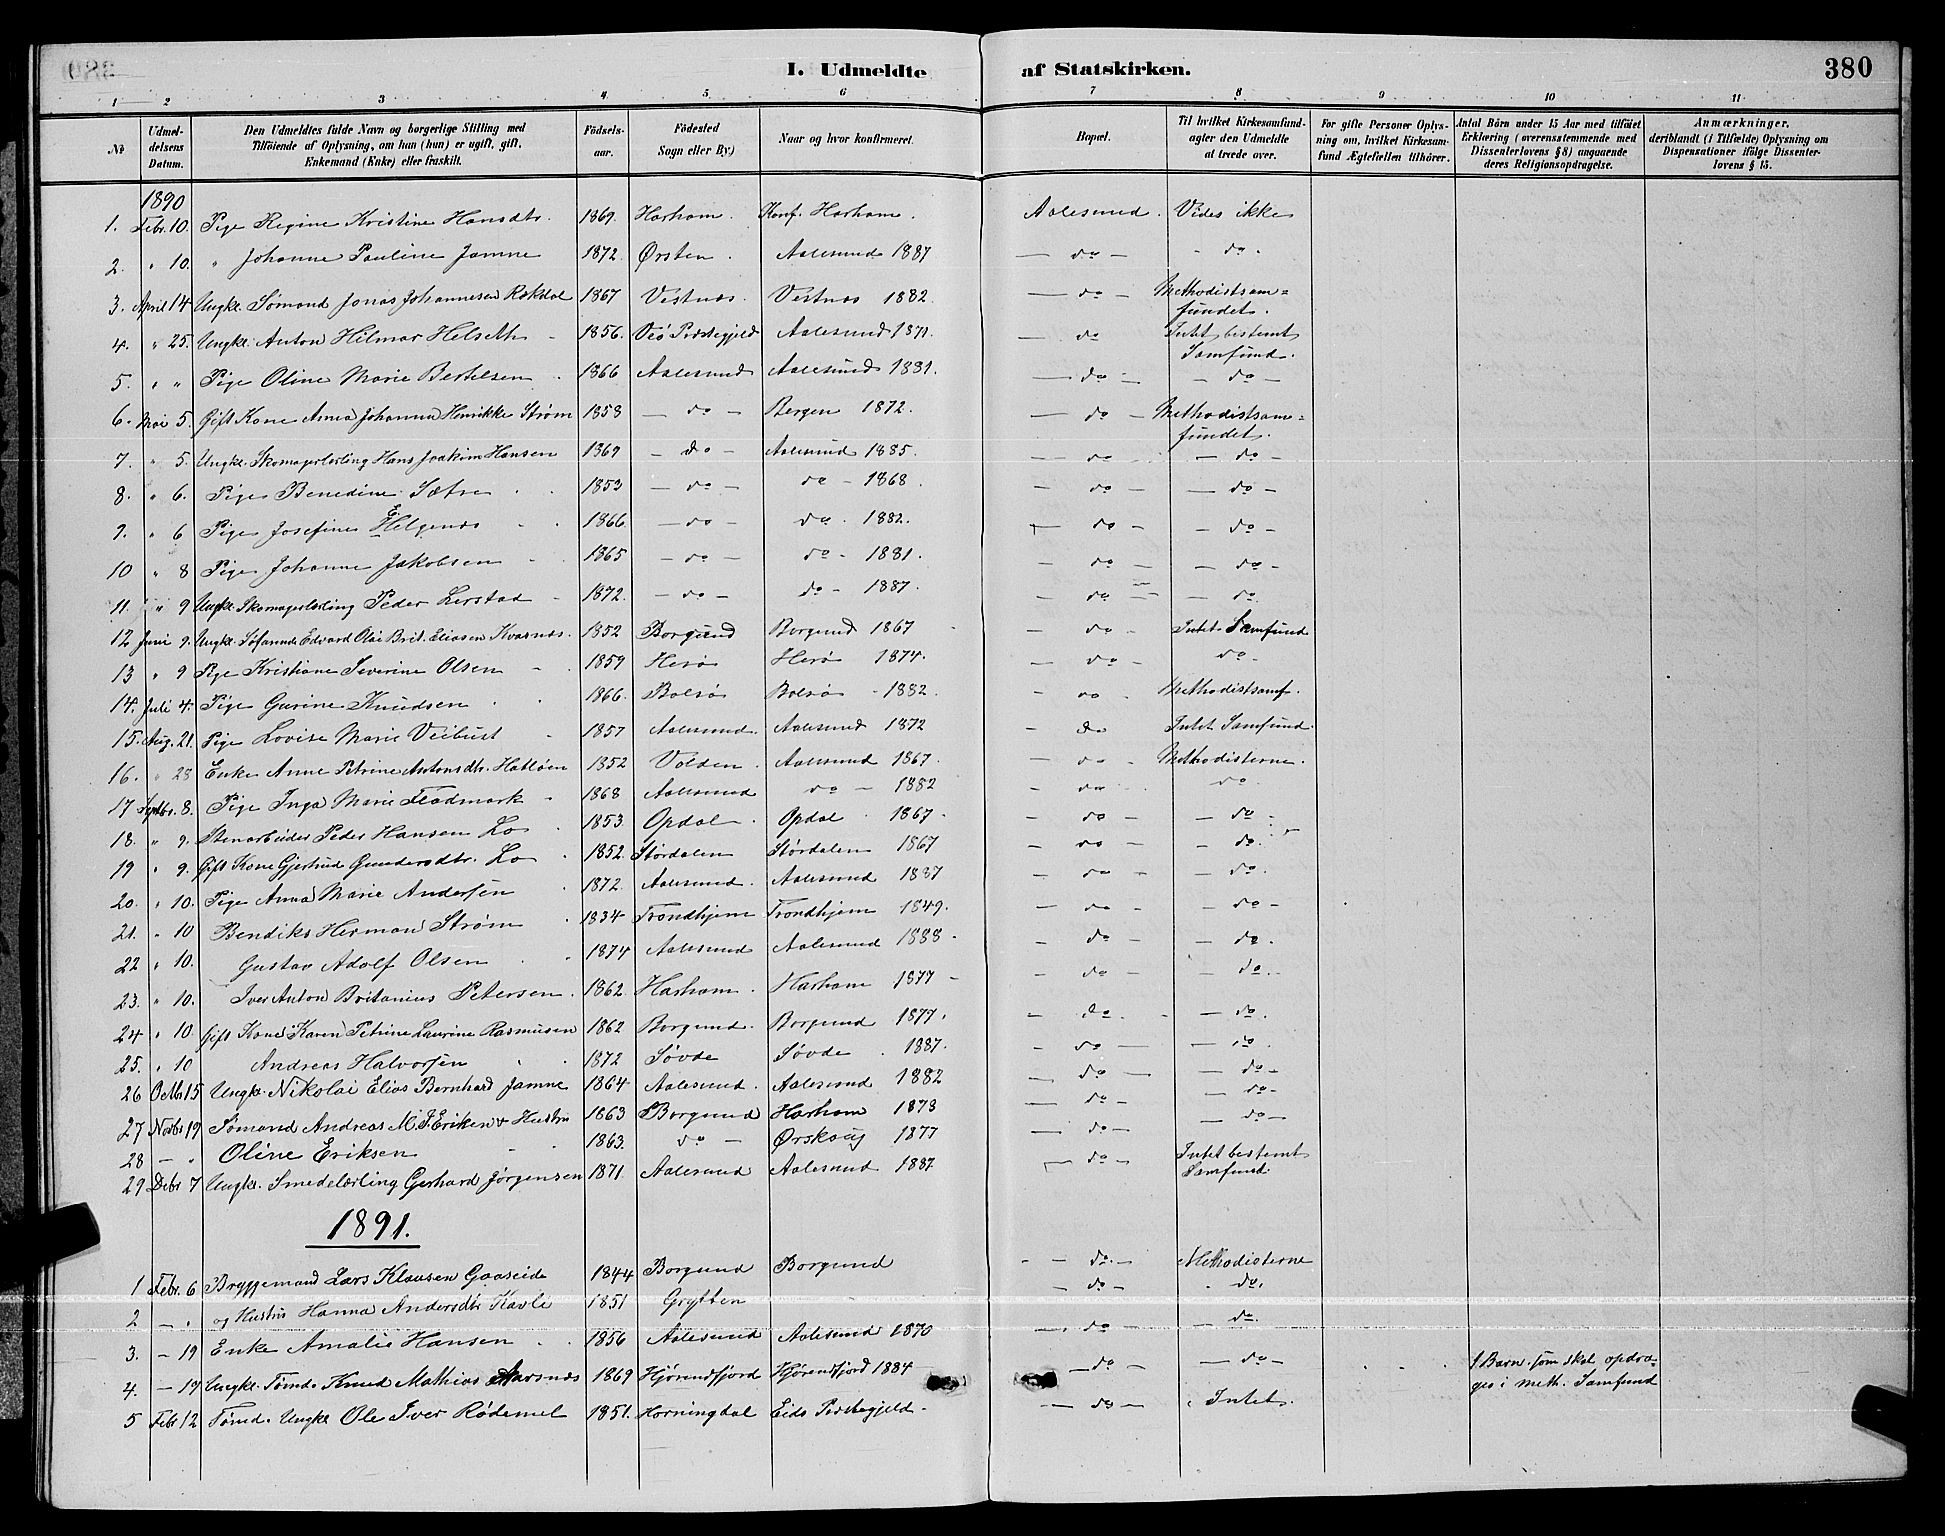 I. Udmeldte af Statskirken. 380
1 2 3 4 5 6 7 8 9 10 11
No | Udmeldelsens Datum. | Den Udmeldtes fulde Navn og borgerlige Stilling med Tilföiende af Oplysning, om han (hun) er ugift, gift, Enkemand (Enke) eller fraskilt. | Födselsaar. | Födested Sogn eller By) | Naar og hvor konfirmeret. | Bopæl. | Til hvilket Kirkesamfund agter den Udmeldte at træde over. | For gifte Personer Oplysning om, hvilket Kirkesamfund Ægtefællen tilhörer. | Antal Börn under 15 Aar med tilföiet Erklæring (overensstemmende med Dissenterlovens § 8) angaaende deres Religionsopdragelse. | Anmærkninger, deriblandt (i Tilfælde) Oplysning om Dispensationer ifölge Dissenterlovens § 15.
1890
1. Febr. 10. Pige Regine Kristine Hansdtr. 1869. Harham. Konf. Harham. Aalesund. Vides ikke
2. " 10. " Johanne Pauline Jamne 1872. Ørsten. Aalesund 1887 — do — - do -
3. April 14 Ungkl. Sømand Jonas Johannesen Rekdal 1867 Vestnæs. Vestnæs 1882. — do — Methodistsamfundet.
4. " 25. Ungkl. Anton Hilmar Helseth 1856. Veö Præstegjeld Aalesund 1871. — do Intet bestemt Samfund.
5. " " Pige Oline Marie Bertelsen 1866 Aalesund Aalesund 1881. — do — — do —
6. Mai 5. Gift Kone Anna Johanna Henrikke Strøm 1858 — do — Bergen 1872. — do — Methodistsamfundet.
7. " 5. Ungkl. Skomagerlærling Hans Joakim Hansen 1869 — do — Aalesund 1885. — do — — do —
8. " 6. Pige Benedine Sætre 1853 — do — do — 1868. — do — — do —
9. " 6 Pige Josefine E. Helgenæs 1866. — do — do. 1882. — do — — do —
10 " 8 Pige Johanne Jakobsen 1865 — do — do - 1881. — do — — do —
11. " 9 Ungkl. Skomagerlærling Peder Lerstad 1872. — do — do - 1887. — do — — do.
12 Juni 9. Ungkl. Edvard Olai Eliasen Kvasnes. 1852 Borgund Borgund 1867 — do - Intet Samfund
13 " 9 Pige Kristiane Severine Olsen 1859 Herö Herö 1874. — do — do -
14. Juli 4. Pige Gurine Knudsen 1866. Bolsö Bolsö - 1882. - do - Methodistsamf.
15. Aug. 21. Pige Lovise Marie Veibust 1857 Aalesund. Aalesund 1872 - do Intet Samfund.
16. " 28 Enke Anne Petrine Antonsdtr. Hatlöen 1852 Volden. Aalesund 1867. - do - Methodisterne.
17 Septbr. 8. Pige Inga Marie Flodmark 1868 Aalesund do — 1882 - do - do -
18. " 9. Stenarbeider Peder Hansen Lo 1853. Opdal. Opdal 1867. — do — — do -
19 " 9. Gift Kone Gjertrud Gundersdtr. Lo 1852. Størdalen Størdalen 1867 — do — — do.
20. " 10. Pige Anna Marie Andersen 1872. Aalesund. Aalesund 1887 — do — — do.
21. " 10 Bendiks Herman Strøm 1834 Trondhjem Trondhjem 1849. — do — — do —
22 " 10. Gustav Adolf Olsen 1874 Aalesund Aalesund 1888 - — do — — do.
23. " 10. Iver Anton Britanius Petersen. 1862. Harham. Harham 1877 — — do — — do.
24 " 10 Gift Kone Karen Petrine Laurine Rasmusen 1862 Borgund. Borgund 1877. - do. — do.
25. " 10 Andreas Halvorsen 1872 Søvde Søvde. 1887. - do — — do.
26 Oktb. 15 Ungkl. Nikolai Elias Bernhard Jamne 1864 Aalesund. Aalesund 1882 — do — — do —
27 Novbr 19 Sömand Andreas M. Eriksen & Hustru 1863 Borgund Harham 1878 — do — — do —
28 — " Oline Eriksen 1863. do — Ørskoug 1877 — do — — do —
29 Debr 7 Ungkl. Smedelærling Gerhard Jørgensen 1871 Aalesund Aalesund 1887. — do — Intet bestemt Samfund.
1891.
1 Febr. 6 Bryggemand Lars Klausen Gaaseide 1844 Borgund Borgund - - do. - Methodisterne
2 — " og Hustru Hanna Andersdtr Kavli 1851 Grytten — do — - do.
3. — 19 Enke Amalie Hansen 1856 Aalesund Aalesund 1870 — do — — do.
4. — 19 Ungkl. Tømd. Knud Mathias Aarsnæs 1869 Hjørendfjord Hjørendfjord 1884 — do — — do — 1 Barn som skal opdrages i Meth. Samfund
5 Febr. 12 Tømd. Ungkl Ole Iver Rödemel 1851. Horningdal Eids Præstegjeld - — do — " Intet.